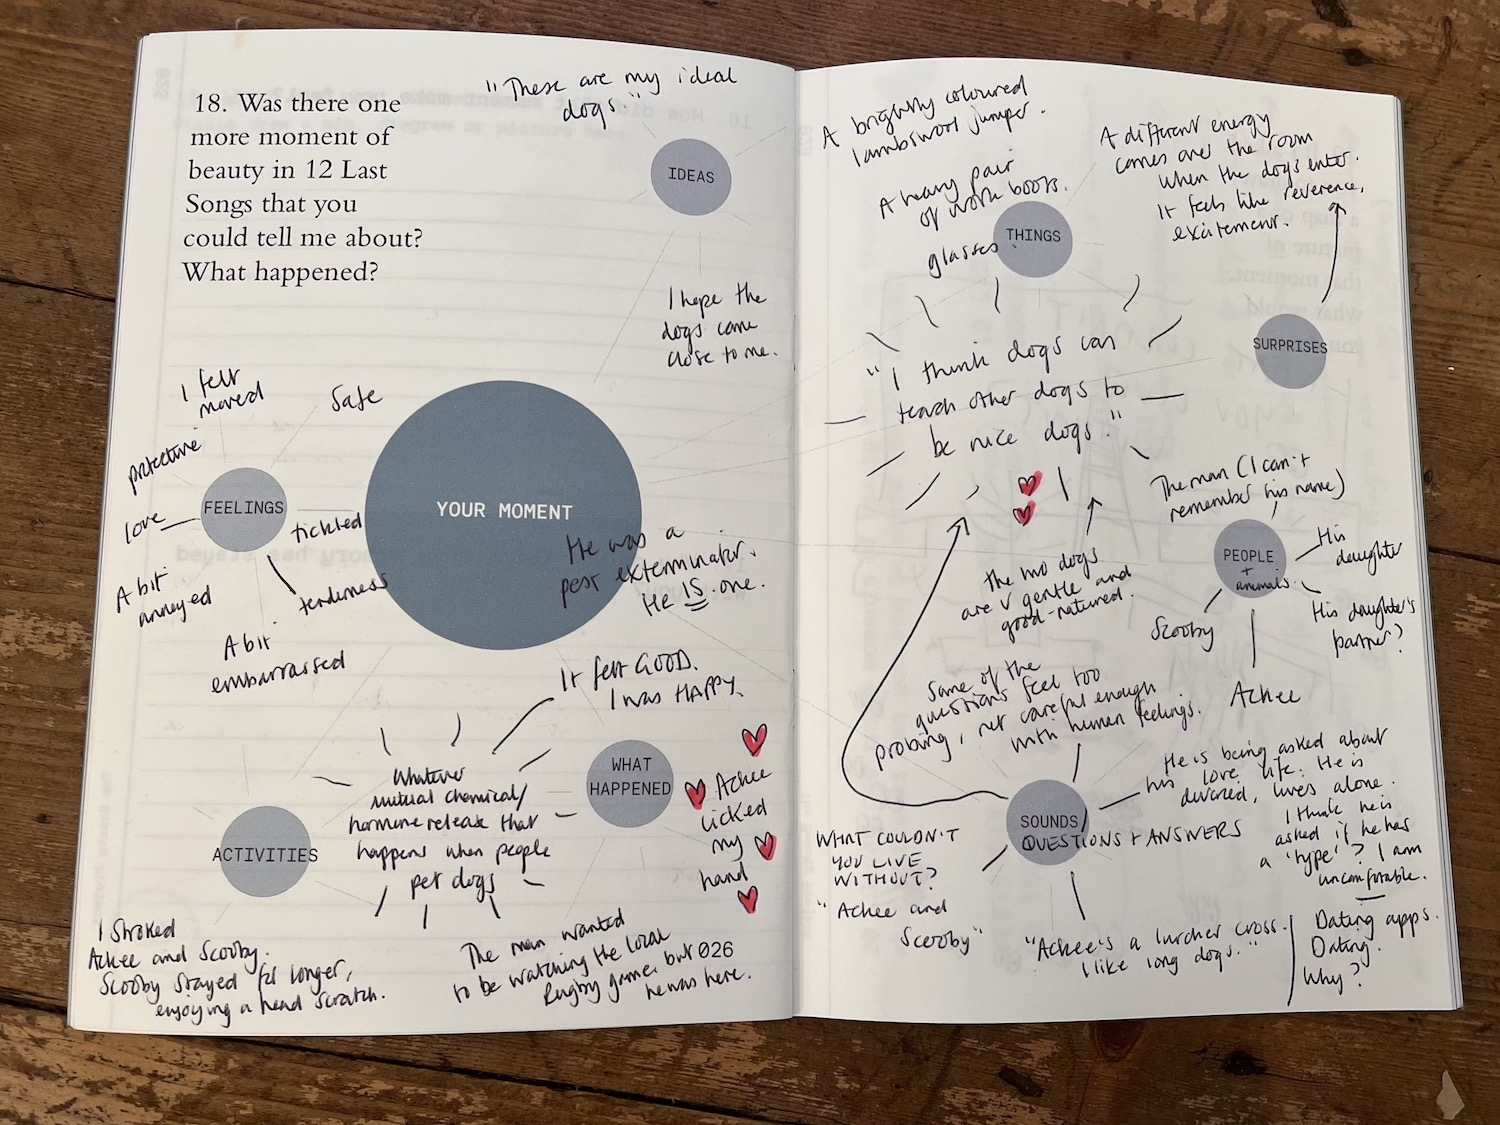 18. Was there one
more moment of
beauty in 12 Last
Songs that you
could tell me about?
What happened?
"These are my ideal
dogs."
IDEAS
I hope the
dogs come
close to me.
I felt
moved
Safe
protective
love
FEELINGS
tickled
A bit
annoyed
tenderness
A bit
embarrassed
YOUR MOMENT
He was a
pest exterminator.
He IS one.
It felt GOOD.
I was HAPPY.
WHAT
HAPPENED
Achee
licked
my
hand
Whatever
mutual chemical/
hormone release that
happens when people
pet dogs
ACTIVITIES
I stroked
Achee and Scooby.
Scooby stayed for longer,
enjoying a head scratch.
The man wanted
to be watching the local
Rugby game but
he was here.
026
A brightly coloured
lambswool jumper.
A heavy pair
of work boots.
glasses.
THINGS
A different energy
comes over the room
when the dogs enter.
It feels like reverence,
excitement.
SURPRISES
"I think dogs can
teach other dogs to
be nice dogs."
The two dogs
are v gentle and
good-natured.
The man (I can't
remember his name)
PEOPLE
+
animals.
His
daughter
His daughter's
partner?
Scooby
Achee
Some of the
questions feel too
probing, not careful enough
with human feelings.
SOUNDS/
QUESTIONS + ANSWERS
He is being asked about
his love life. He is
divorced, lives alone.
I think he is
asked if he has
a 'type'? I am
uncomfortable.
WHAT COULDN'T
YOU LIVE
WITHOUT?
"Achee and
Scooby"
"Achee's a lurcher cross.
I like long dogs."
Dating apps.
Dating.
Why?